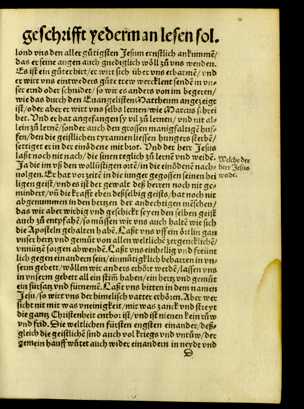 geschrifft yederman lesen sol.
lond vns den aller gütigsten Jesum ernstlich ankummē/
das er seine augen auch gnediglich wöll zů vns wenden.
Es ist ein gůter hirt/ er wirt sich über vns erbarmē/ vnd
er wirt vns eintweders gůte trew werck leut sendē in vn
ser ernd oder schnider/ so wir es anders von im begeren/
wie das durch den Euangelisten Mattheum angezeigt
ist/ oder aber er wirt vns selbs lernen/ wie Marcus schrei
bet. Vnd er hat angefangen sy vil zů lernen/ vnd nit al-
lein zů lernē/ sonder auch den grossen manigfaltigē huf-
fen/ den die geistlichen tyrannen liessen hungers sterbē/
settiget er in der einödene mit brot. Vnd der herr Jesus
laßt noch nit nach/ die sinen teglich zů lernē vnd weidē.
Ja die im vß den wollüstigen ort in die einödenē nach-
uolgen. Er hat vor zeitē in die iunger gegossen seinen hei
ligen geist/ vnd es ist der gewalt deß herren noch nit ge-
mindert/ vn die krafft eben desselbigē geists/ hat noch nit
abgenummen in den hertzen der andechtigen mēschen/
das wir aber wirdig vnd geschickt seyen den selben geist
auch zů entpfahē/ so müssen wir vns auch haltē wie sich
die Aposteln gehalten habē. Laßt vns vff ein ort lin gan
vnser hertz vnd gemüt von allen weltliche zergencklichē/
vnnützē sorgen abwendē. Laßt vns einhellig vnd freünt
lich gegen einander sein/ einmütigklich beharren in vn-
serm gebett/ wöllen wir anders erhört werdē/ lassen vns
in vnserm gebett all ein stim haben/ ein hertz vnd gemüt
ein fürsatz vnd fürnemē. Laßt vns bitten in dem namen
Jesu/ so wirt vns der himelisch vatter erhörē. Aber wer
sicht nit mit was vneinigkeit/ mit was zanck vnd streyt
die gantz Christenheit entbor ist/ vnd ist nienen kein růw
vnd frid. Die weltlichen fürsten engsten einander/ deß-
gleich die geistlichē sind auch vol kriegs vnd vnrůw/ der
gemein hauff wütet auch wider einandern in neydt vnd
D
Welche der
herr Jesus
weide.